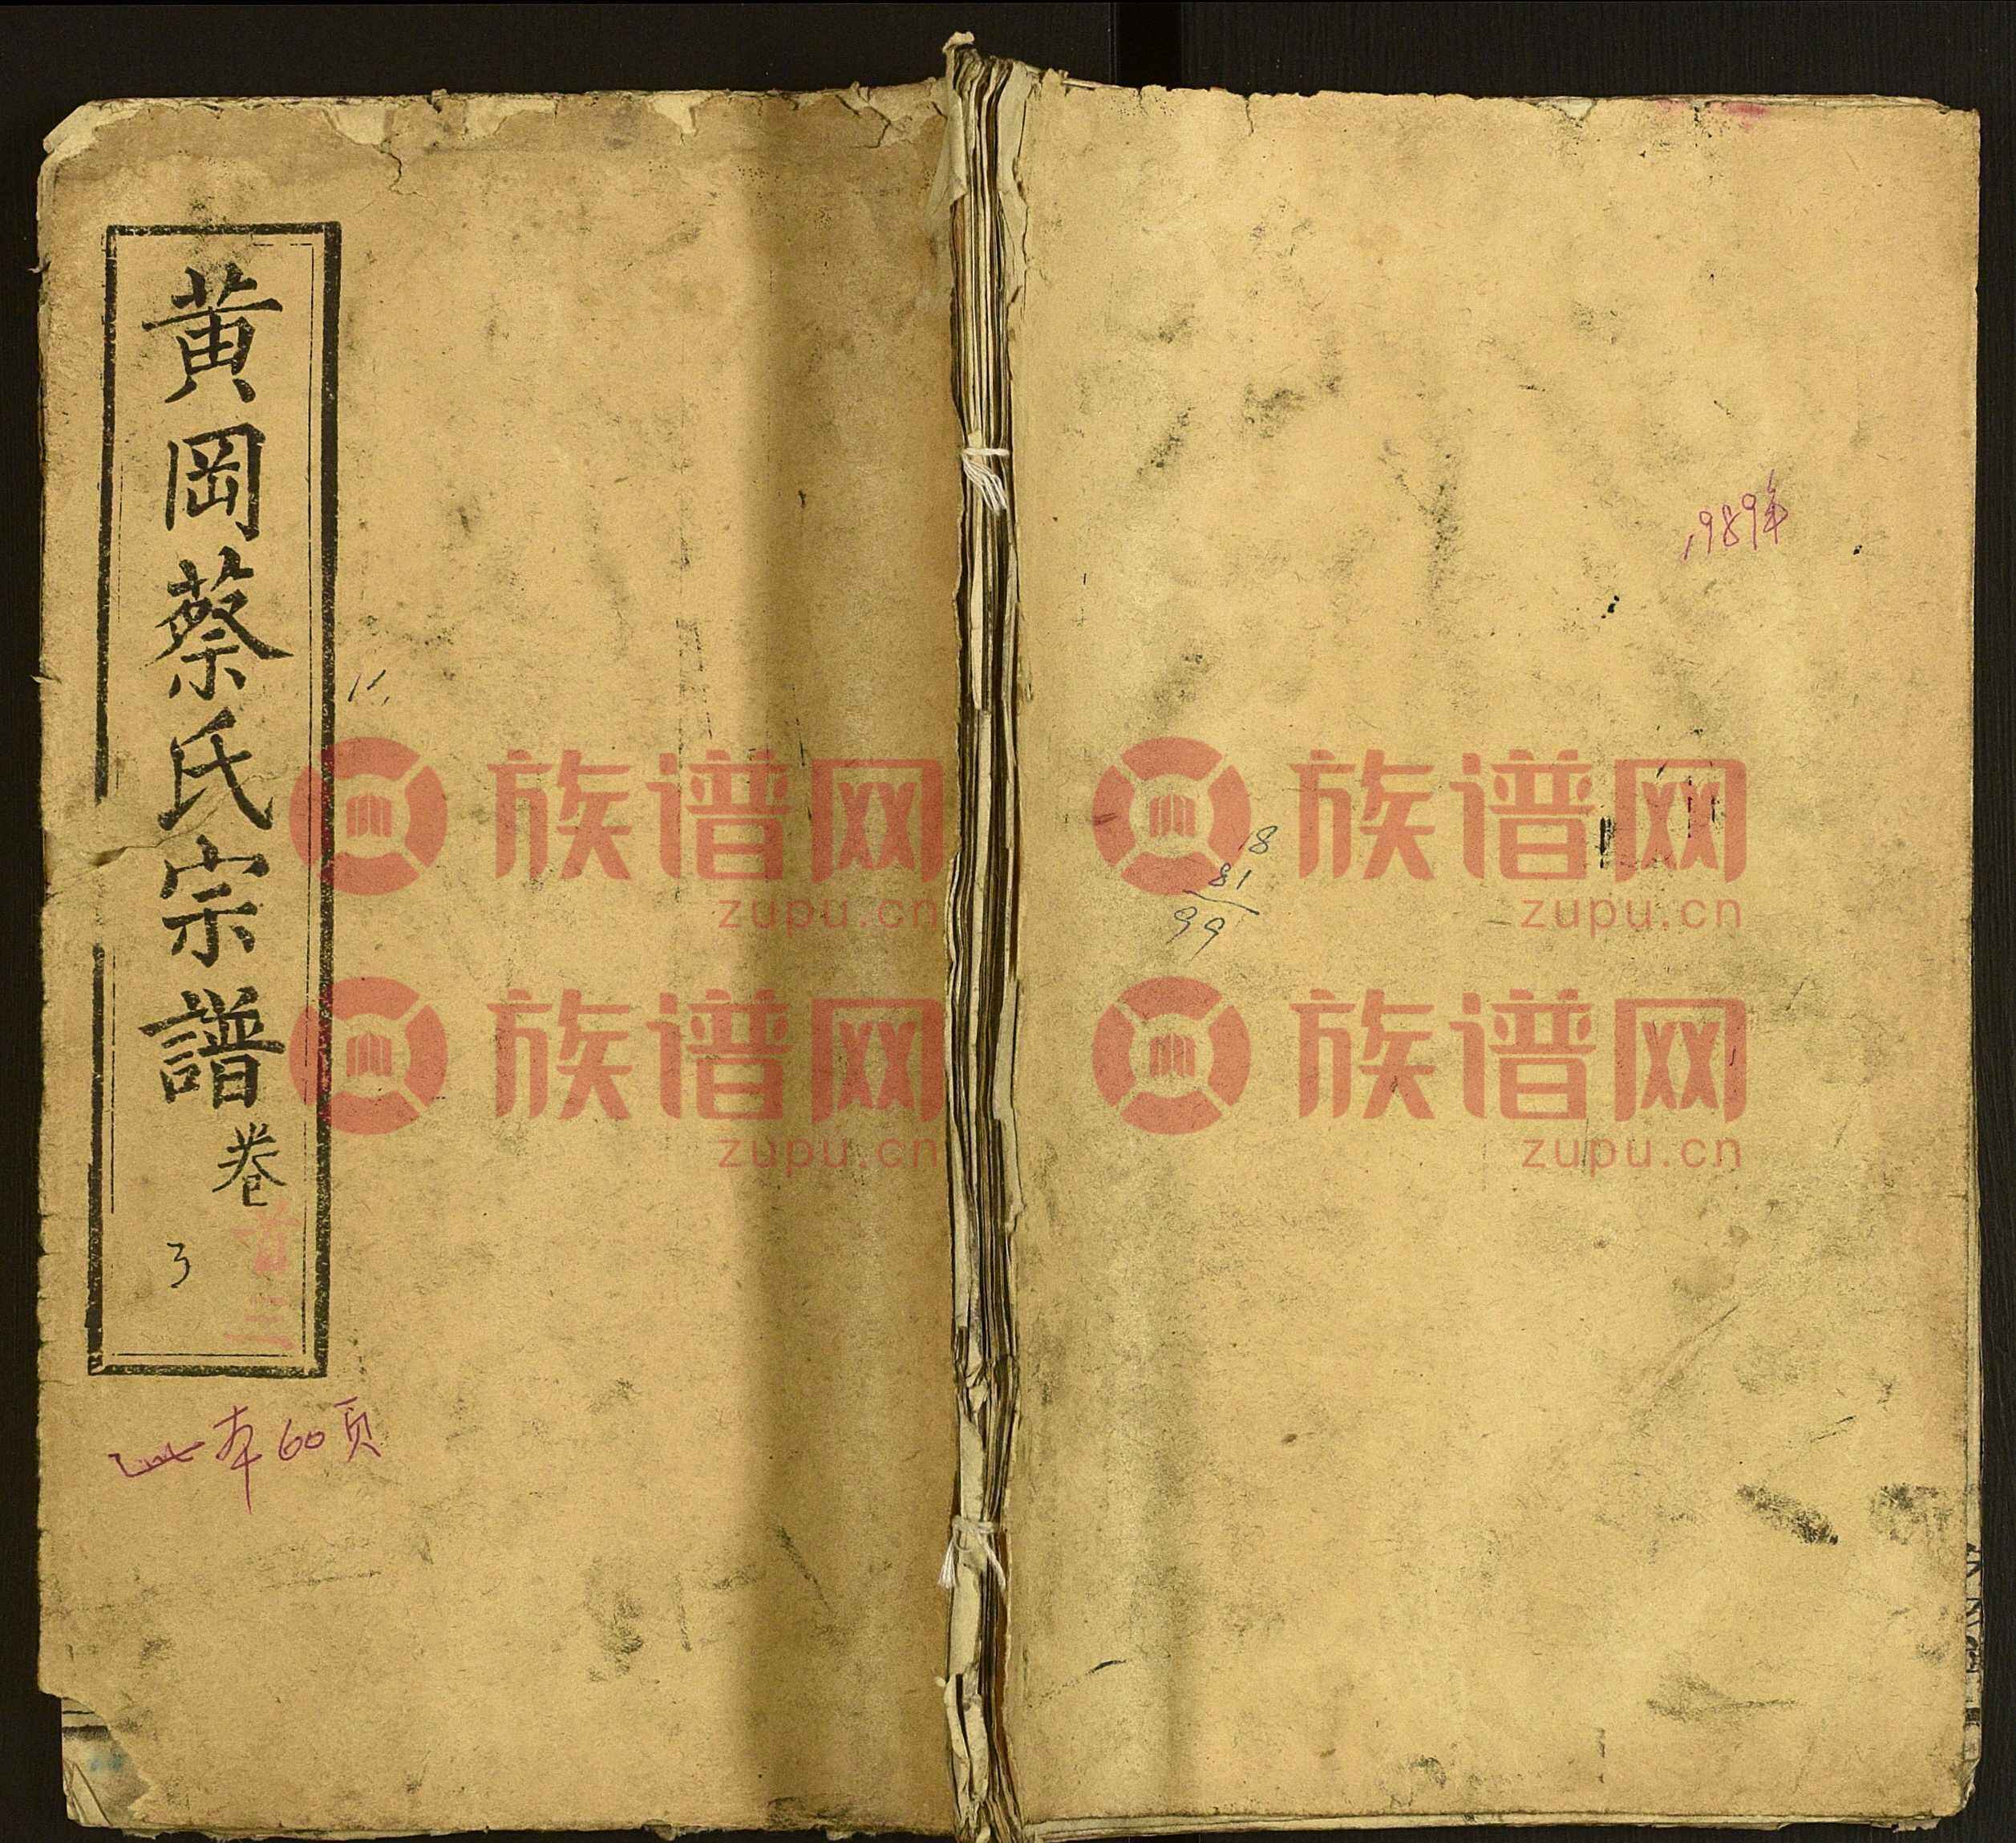 黄岡蔡氏宗譜卷
首
三
3
此本60页
1989年
18
81
99
族谱网
zupu.cn
族谱网
zupu.cn
族谱网
zupu.cn
族谱网
zupu.cn